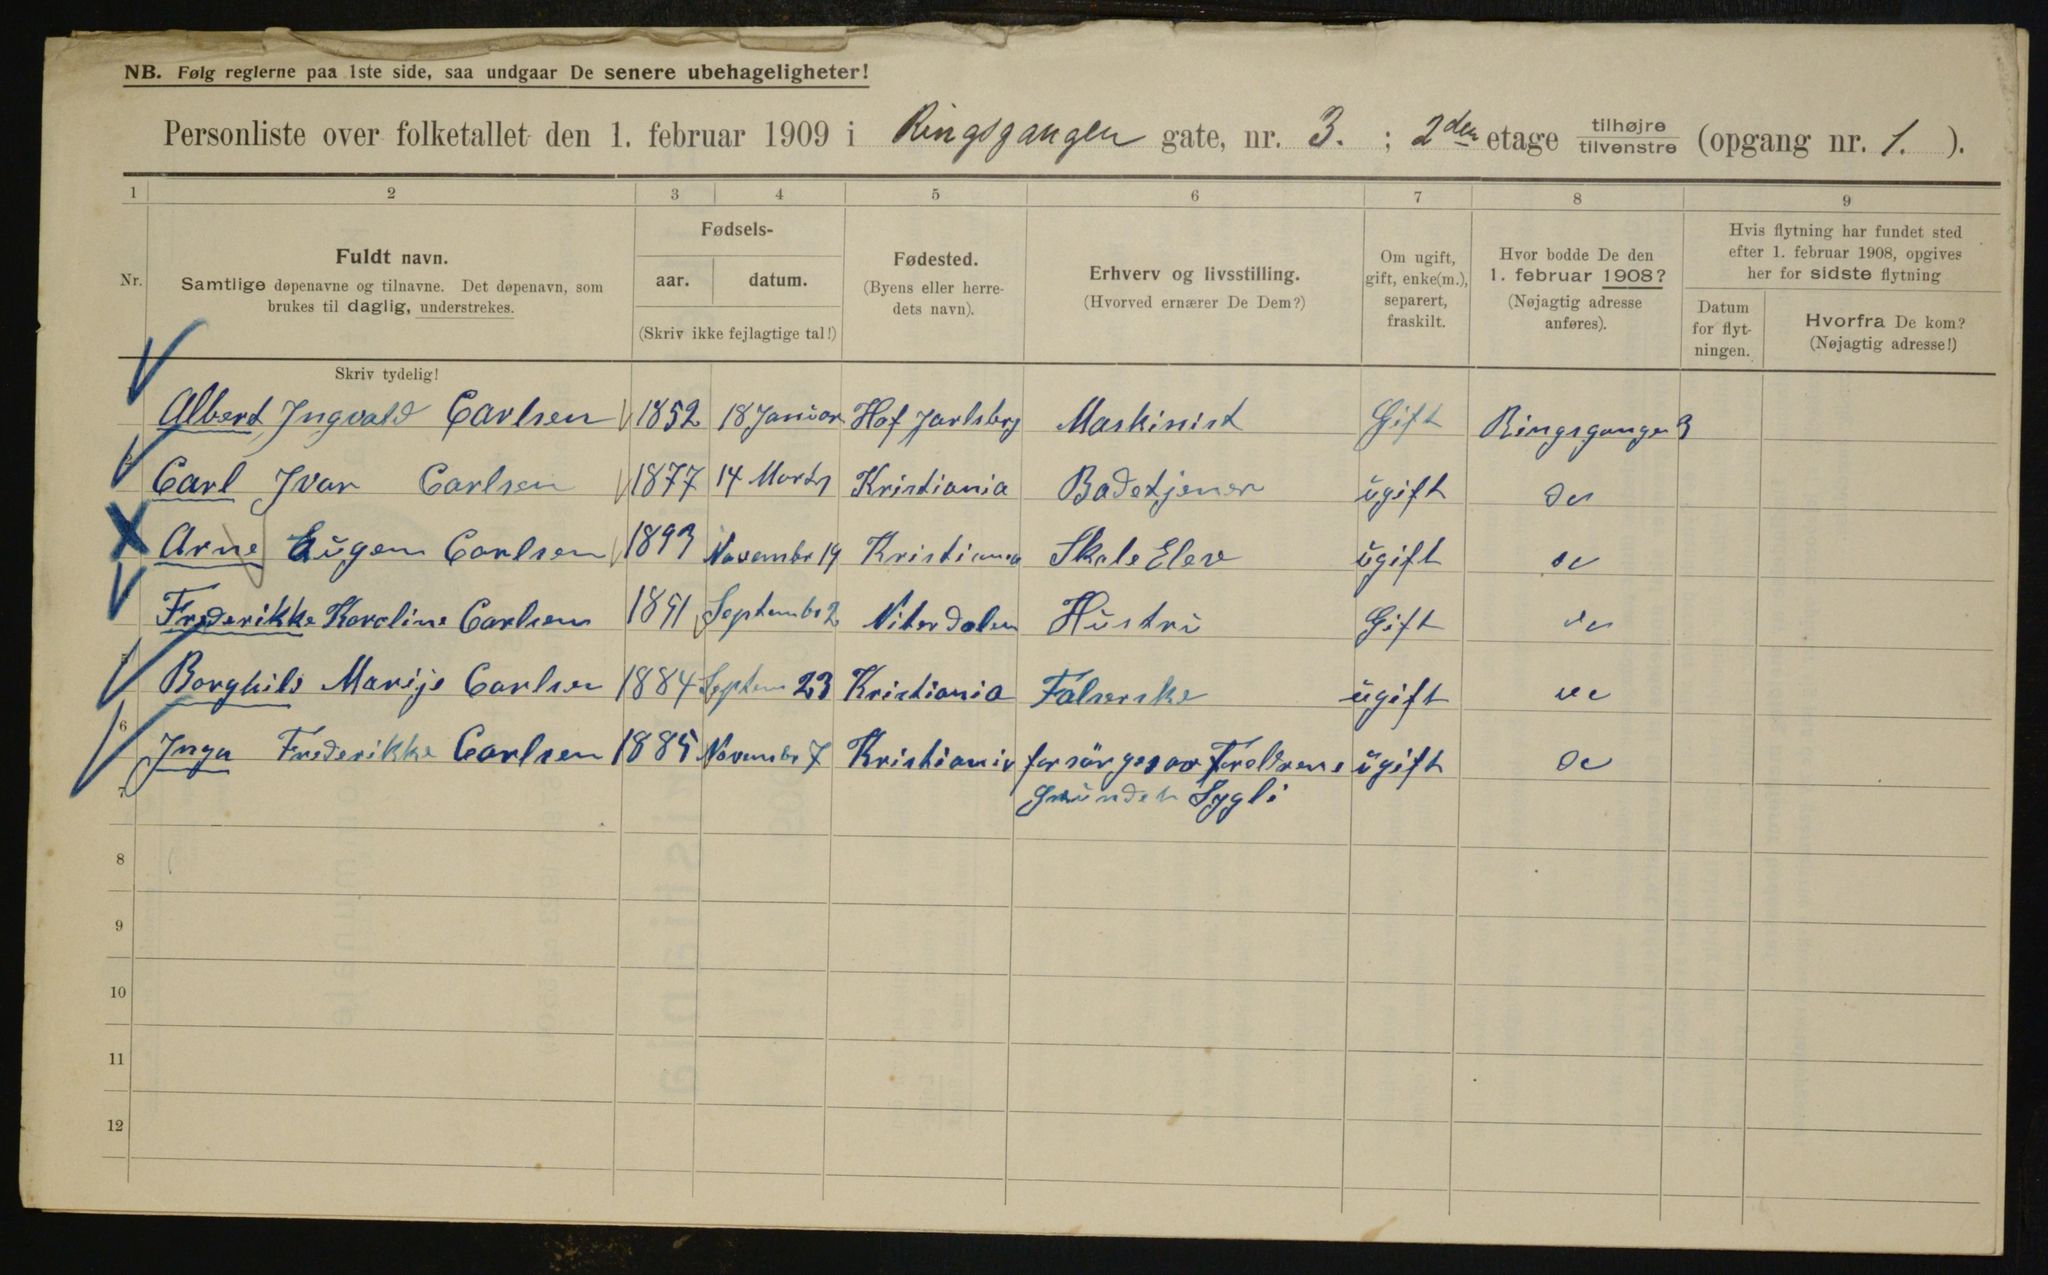 NB. Følg reglerne paa 1ste side, saa undgaar De senere ubehageligheter!
Personliste over folketallet den 1. februar 1909 i Ringsgangen gate, nr. 3. ; 2den etage tilhøjre tilvenstre (opgang nr. 1. ).
1 2 3 4 5 6 7 8 9
Nr.
Fuldt navn.
Samtlige døpenavne og tilnavne. Det døpenavn, som
brukes til daglig, understrekes.
Skriv tydelig!
Fødsels-
aar. datum.
(Skriv ikke fejlagtige tal!)
Fødested.
(Byens eller herre-
dets navn).
Erhverv og livsstilling.
(Hvorved ernærer De Dem?)
Om ugift,
gift, enke(m.),
separert,
fraskilt.
Hvor bodde De den
1. februar 1908?
(Nøjagtig adresse
anføres).
Hvis flytning har fundet sted
efter 1. februar 1908, opgives
her for sidste flytning
Datum
for flyt-
ningen.
Hvorfra De kom?
(Nøjagtig adresse!)
Albert Ingvald Carlsen 1852 18 Januar Hof Jarlsberg Maskinist Gift Ringsgangen 3
Carl Ivar Carlsen 1877 14 Marts Kristiania Badetjener ugift do
Arne Eugen Carlsen 1893 Novembr 19 Kristiania Skole Elev ugift do
Frederikke Karoline Carlsen 1851 Septembr 2 Niterdalen Hustru Gift do
5 Borghild Marije Carlsen 1884 Septem 23 Kristiania ugift do
6 Inga Frederikke Carlsen 1885 Novembr 7 Kristiania forsörges av Foreldrene ugift do
7 Grundet Sygli
8
9
10
11
12